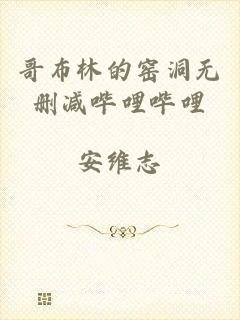 哥布林的窑洞无
删减哔哩哔哩
安维志